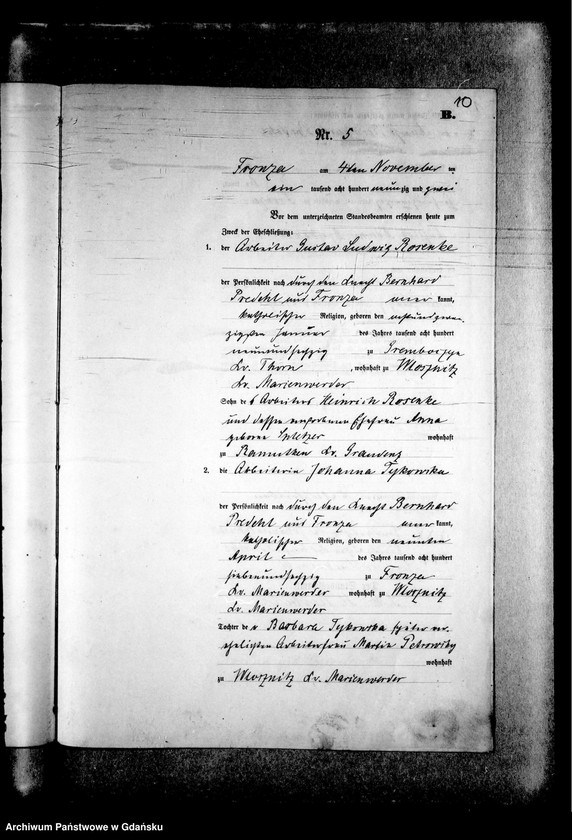 10
B.
Nr. 5
Fronza am 4ten November
ein tausend acht hundert neunzig und zwei
Vor dem unterzeichneten Standesbeamten erschienen heute zum
Zweck der Eheschließung:
1. der Arbeiter Gustav Ludwig Rosenke
der Persönlichkeit nach durch den Knecht Bernhard
Predehl aus Fronza aner kannt,
katholischer Religion, geboren den
zigsten Januar des Jahres tausend acht hundert
neunundsechzig zu Gremboczyn
Kr. Thorn, wohnhaft zu
Kr. Marienwerder
Sohn des Arbeiters Heinrich Rosenke
und dessen verstorbenen Ehefrau Anna
geborene wohnhaft
zu Kr. Graudenz
2. die Arbeiterin Johanna Tykowska
der Persönlichkeit nach durch den Knecht Bernhard
Predehl aus Fronza aner kannt,
katholischer Religion, geboren den neunten
April des Jahres tausend acht hundert
siebenundsechzig zu Fronza
Kr. Marienwerder wohnhaft zu
Kr. Marienwerder
Tochter der Barbara Tykowska später ver-
ehelichten Arbeiterfrau Martin
wohnhaft
zu Kr. Marienwerder
Archiwum Państwowe w Gdańsku